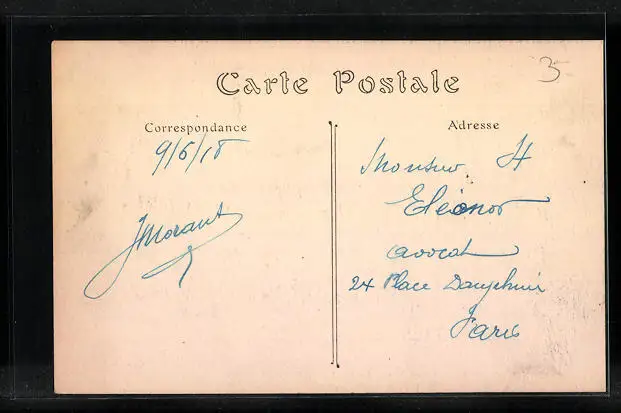 Carte Postale
3
Correspondance
9/6/18
JMorant
Adresse
Monsieur H
Eléonor
avocat
24 Place Dauphine
Paris